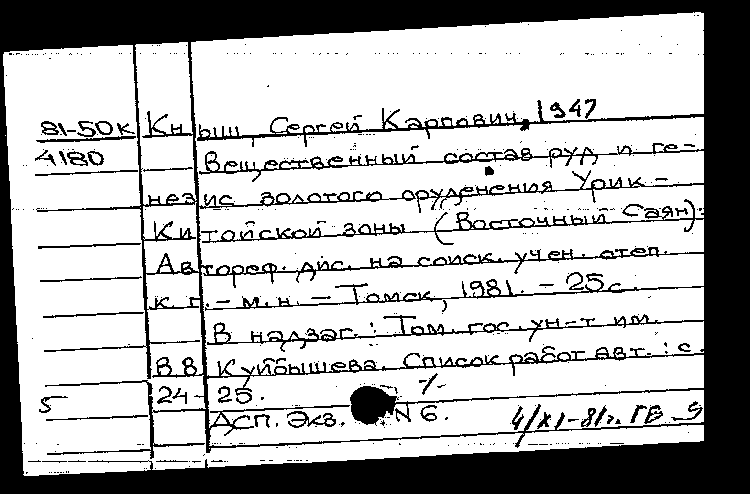 81-50к Кныш, Сергей Карпович, 1947
4180 Вещественный состав руд и ге-
незис золотого оруденения Урик-
Китойской зоны (Восточный Саян):
Автореф. дис. на соиск. учен. степ.
к. г.-м. н. - Томск, 1981. - 25 с.
В надзаг.: Том. гос. ун-т им.
В В Куйбышева. Список работ авт.: с.
5 24-25.
Асп. Экз. N 6. 4/XI-81г. ГВ